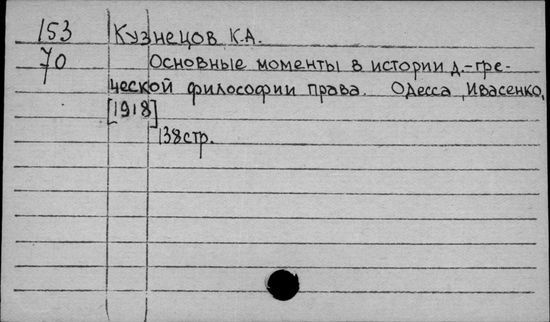 153 Кузнецов К.А.
70 Основные моменты в истории д.-гре-
ческой философии права. Одесса, Ивасенко,
[1918]
138стр.